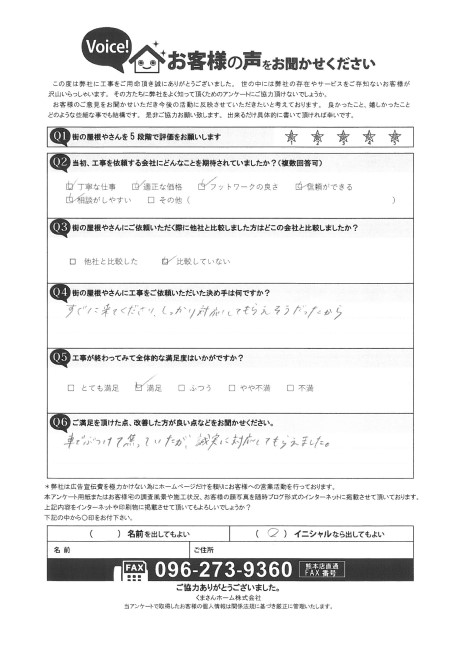 Voice!
お客様の声をお聞かせください
この度は弊社に工事をご用命頂き誠にありがとうございました。世の中には弊社の存在やサービスをご存知ないお客様が
沢山いらっしゃいます。その方たちに弊社をよく知って頂くためのアンケートにご協力頂けないでしょうか。
お客様のご意見をお聞かせいただき今後の活動に反映させていただきたいと考えております。良かったこと、嬉しかったこと
どのような些細な事でも結構です。是非ご協力お願い致します。出来るだけ具体的に書いて頂ければ幸いです。
Q1 街の屋根やさんを5段階で評価をお願いします ★ ★ ★ ★ ★
Q2 当初、工事を依頼する会社にどんなことを期待されていましたか？(複数回答可)
☑ 丁寧な仕事 ☑ 適正な価格 ☑ フットワークの良さ ☑ 信頼ができる
☑ 相談がしやすい □ その他 ( )
Q3 街の屋根やさんにご依頼いただく際に他社と比較しました方はどこの会社と比較しましたか？
□ 他社と比較した ☑ 比較していない
Q4 街の屋根やさんに工事をご依頼いただいた決め手は何ですか？
すぐに来てくださり、しっかり対応してもらえそうだったから
Q5 工事が終わってみて全体的な満足度はいかがですか？
□ とても満足 ☑ 満足 □ ふつう □ やや不満 □ 不満
Q6 ご満足を頂けた点、改善した方が良い点などをお聞かせください。
車でぶつけて焦っていたが、誠実に対応してもらえました。
＊弊社は広告宣伝費を極力かけない為にホームページだけを頼りにお客様への営業活動を行っております。
本アンケート用紙またはお客様宅の調査風景や施工状況、お客様の顔写真を随時ブログ形式のインターネットに掲載させて頂いております。
上記内容をインターネットや印刷物に掲載させて頂いてもよろしいでしょうか？
下記の中から〇印をお付下さい。
( ) 名前を出してもよい ( 〇 ) イニシャルなら出してもよい
名 前 ご住所
FAX 096-273-9360 熊本店直通 FAX番号
ご協力ありがとうございました。
くまさんホーム株式会社
当アンケートで取得したお客様の個人情報は関係法規に基づき厳正に管理いたします。